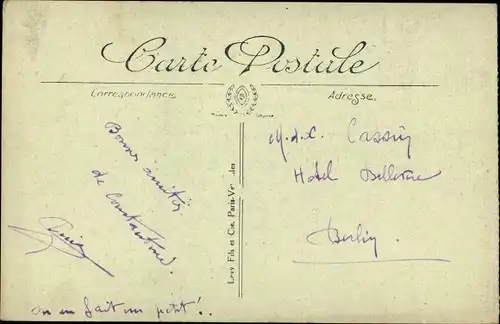 Carte Postale
Correspondance
Adresse
Bonnes amitiés
de Constantine.
on en fait un petit!..
Levy Fils et Cie, Paris
M. d. C. Cassin
Hotel Bellevue
Berlin.